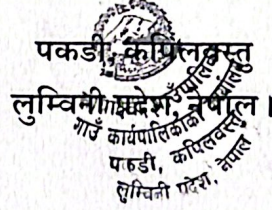 पकडी, कपिलवस्तु
लुम्विनी प्रदेश, नेपाल।
गाउँ कार्यपालिकाको
पकडी, कपिलवस्तु
लुम्विनी प्रदेश, नेपाल